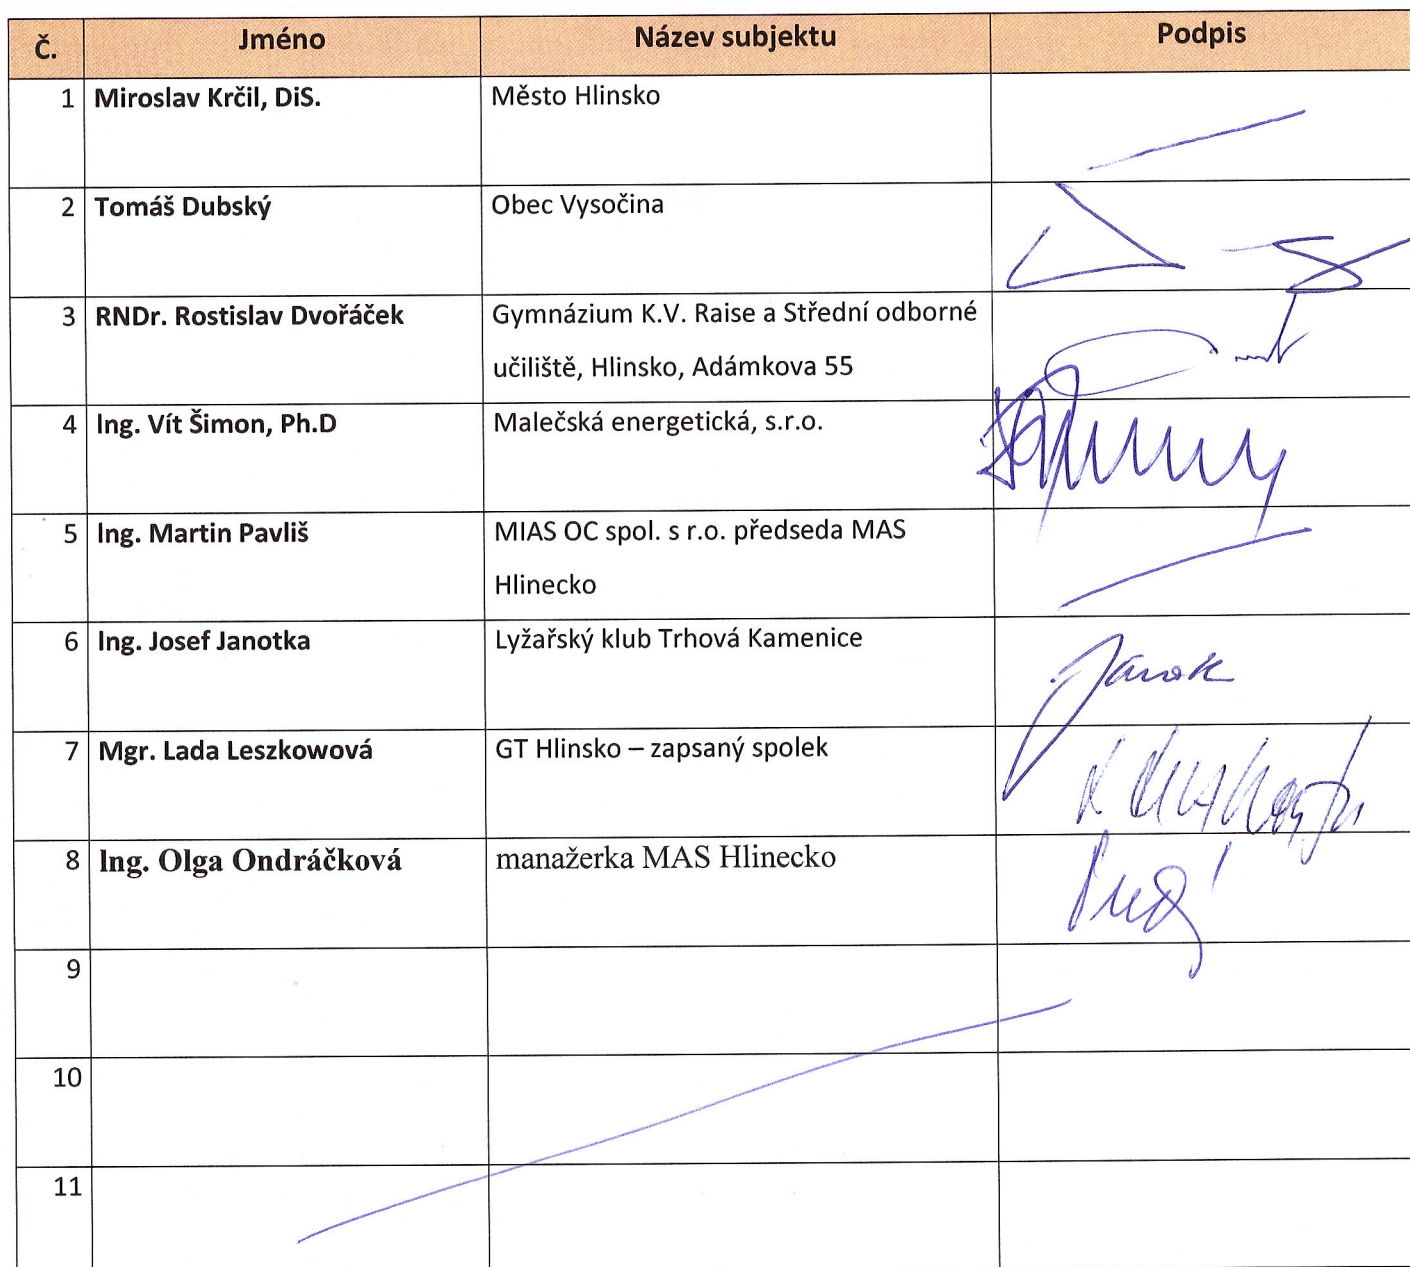 Č. Jméno Název subjektu Podpis
1 Miroslav Krčil, DiS. Město Hlinsko
2 Tomáš Dubský Obec Vysočina
3 RNDr. Rostislav Dvořáček Gymnázium K.V. Raise a Střední odborné
učiliště, Hlinsko, Adámkova 55
4 Ing. Vít Šimon, Ph.D Malečská energetická, s.r.o.
5 Ing. Martin Pavliš MIAS OC spol. s r.o. předseda MAS
Hlinecko
6 Ing. Josef Janotka Lyžařský klub Trhová Kamenice
7 Mgr. Lada Leszkowová GT Hlinsko – zapsaný spolek
8 Ing. Olga Ondráčková manažerka MAS Hlinecko
9
10
11